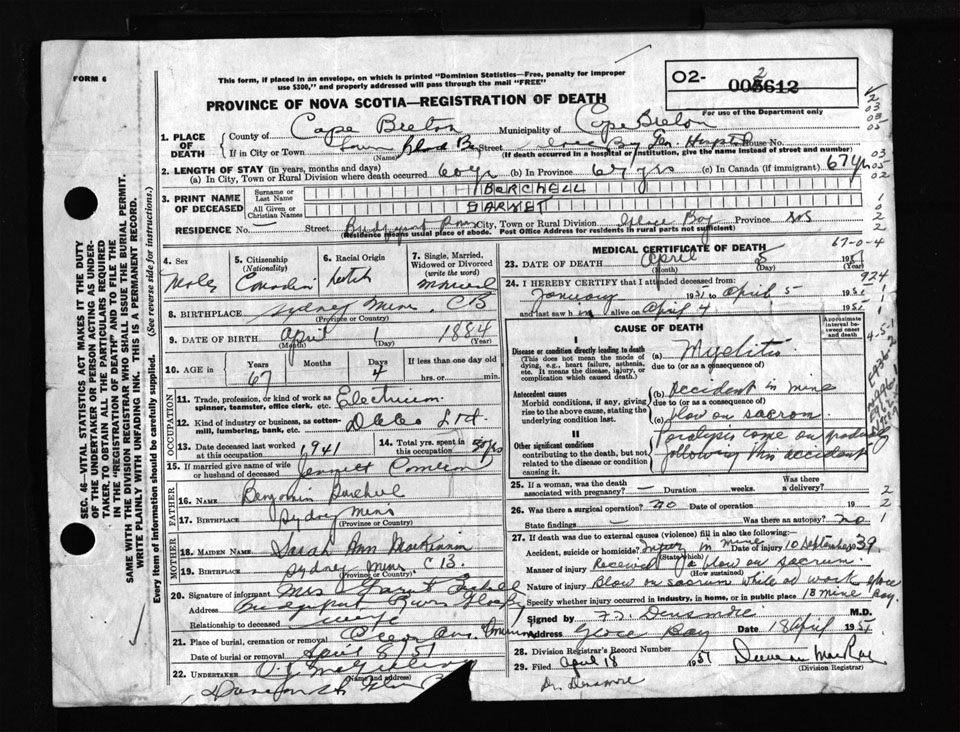 FORM 6
This form, if placed in an envelope, on which is printed "Dominion Statistics—Free, penalty for improper
use $300," and properly addressed will pass through the mail "FREE"
O2-
2
005612
For use of the Department only
PROVINCE OF NOVA SCOTIA—REGISTRATION OF DEATH
1. PLACE OF DEATH
County of Cape Breton Municipality of Cape Breton
If in City or Town (Name) Street House No.
(If death occurred in a hospital or institution, give the name instead of street and number)
2. LENGTH OF STAY (in years, months and days)
(a) In City, Town or Rural Division where death occurred 60 yr (b) In Province 67 yrs (c) In Canada (if immigrant) 67 yr
3. PRINT NAME OF DECEASED
Surname or Last Name BORCHELL
All Given or Christian Names GARNET
RESIDENCE No. — Street City, Town or Rural Division Glace Bay Province N.S
(Residence means usual place of abode. Post Office Address for residents in rural parts not sufficient)
4. Sex Male
5. Citizenship (Nationality) Canadian
6. Racial Origin
7. Single, Married, Widowed or Divorced (write the word) Married
8. BIRTHPLACE Sydney Mines CB
(Province or Country)
9. DATE OF BIRTH April 1 1884
(Month) (Day) (Year)
10. AGE in Years 67 Months Days 4 If less than one day old
hrs. or min.
OCCUPATION
11. Trade, profession, or kind of work as spinner, teamster, office clerk, etc. Electrician
12. Kind of industry or business, as cotton-mill, lumbering, bank, etc.
13. Date deceased last worked at this occupation 1941
14. Total yrs. spent in this occupation
15. If married give name of wife or husband of deceased
FATHER
16. NAME Benjamin
17. BIRTHPLACE Sydney Mines
(Province or Country)
MOTHER
18. MAIDEN NAME Sarah Ann MacKinnon
19. BIRTHPLACE Sydney Mines C.B.
(Province or Country)
20. Signature of informant Mrs
Address
Relationship to deceased wife
21. Place of burial, cremation or removal
Date of burial or removal April 8/51
22. UNDERTAKER
(Name and address)
MEDICAL CERTIFICATE OF DEATH
67-0-4
23. DATE OF DEATH April 5 1951
(Month) (Day)
24. I HEREBY CERTIFY that I attended deceased from:
January to April 5 1951
and last saw h alive on April 4 1951
924
CAUSE OF DEATH
Approximate interval between onset and death
I
Disease or condition directly leading to death
(This does not mean the mode of dying, e.g., heart failure, asthenia, etc. It means the disease, injury, or complication which caused death.)
(a) Myelitis
due to (or as a consequence of)
Antecedent causes
Morbid conditions, if any, giving rise to the above cause, stating the underlying condition last.
(b) accident in mine
due to (or as a consequence of)
(c) blow on sacrum
II
Other significant conditions contributing to the death, but not related to the disease or condition causing it.
Paralysis came on
following this accident
25. If a woman, was the death associated with pregnancy? — Duration weeks. Was there a delivery?
26. Was there a surgical operation? no Date of operation 19
State findings — Was there an autopsy? no
27. If death was due to external causes (violence) fill in also the following:
Accident, suicide or homicide? Injury in mine Date of injury 10 September 39
(State which)
Manner of injury Received a blow on sacrum
(How sustained)
Nature of injury Blow on sacrum while at work
Specify whether injury occurred in industry, in home, or in public place 1B mine Glace Bay.
Signed by Densmore M.D.
Address Glace Bay Date 18 April 1951
28. Division Registrar's Record Number
29. Filed April 18 1951
(Division Registrar)
Dr. Densmore
SEC. 46—VITAL STATISTICS ACT MAKES IT THE DUTY
OF THE UNDERTAKER OR PERSON ACTING AS UNDER-
TAKER TO OBTAIN ALL THE PARTICULARS REQUIRED
IN THE "REGISTRATION OF DEATH" AND TO FILE THE
SAME WITH THE DIVISION REGISTRAR WHO SHALL ISSUE THE BURIAL PERMIT.
WRITE PLAINLY WITH UNFADING INK. THIS IS A PERMANENT RECORD.
Every item of information should be carefully supplied. (See reverse side for instructions.)